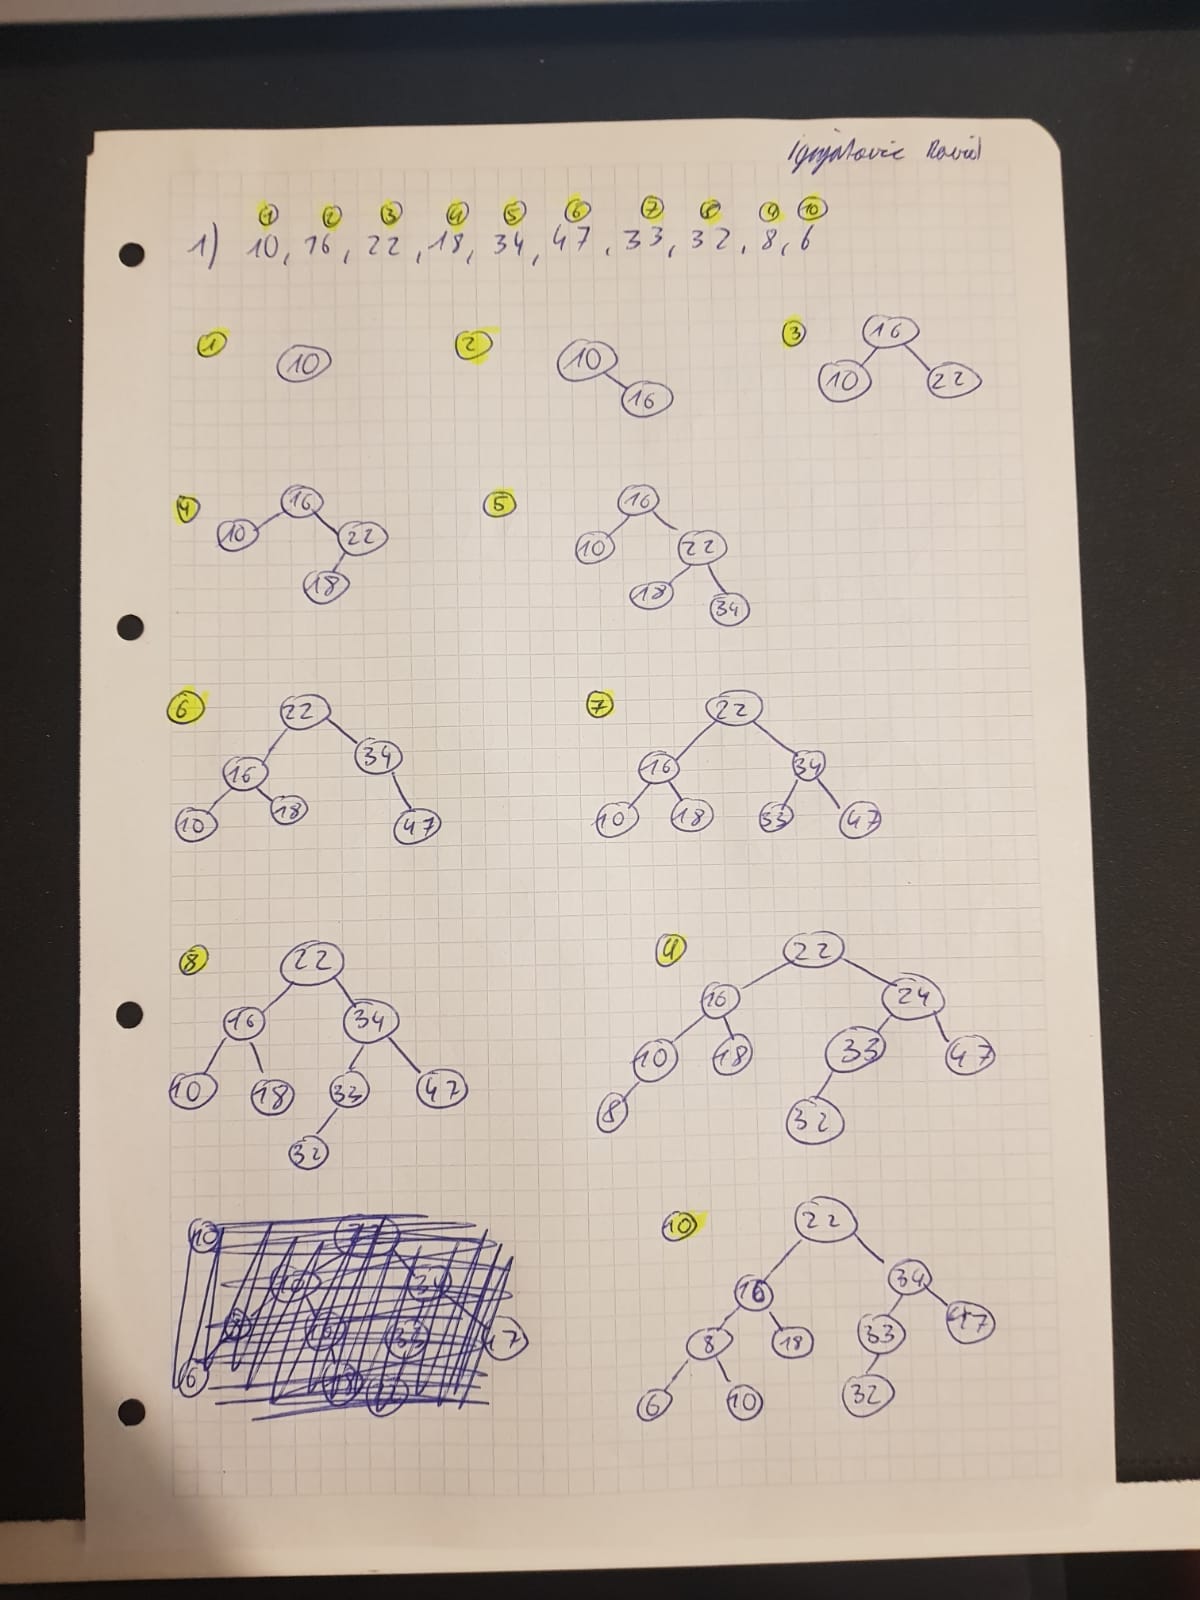 1 2 3 4 5 6 7 8 9 10
1) 10, 16, 22, 18, 34, 47, 33, 32, 8, 6
1 10
2 10
16
3 16
10 22
4 16
10 22
18
5 16
10 22
18 34
6 22
16 34
10 18 47
7 22
16 34
10 18 33 47
8 22
16 34
10 18 33 47
32
9 22
16 24
10 18 33 47
8 32
10 22
16 34
8 18 33 47
6 10 32